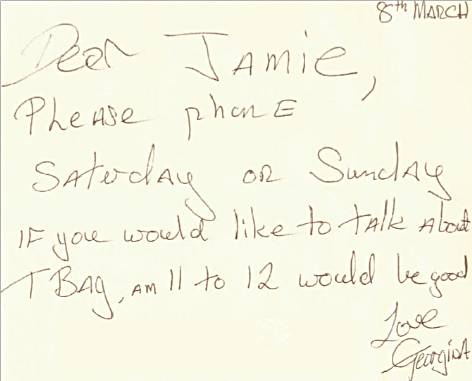 8th MARCH
Dear Jamie,
Please phone
Saturday or Sunday
IF you would like to talk About
TBag, AM 11 to 12 would be good
Love
Georgina